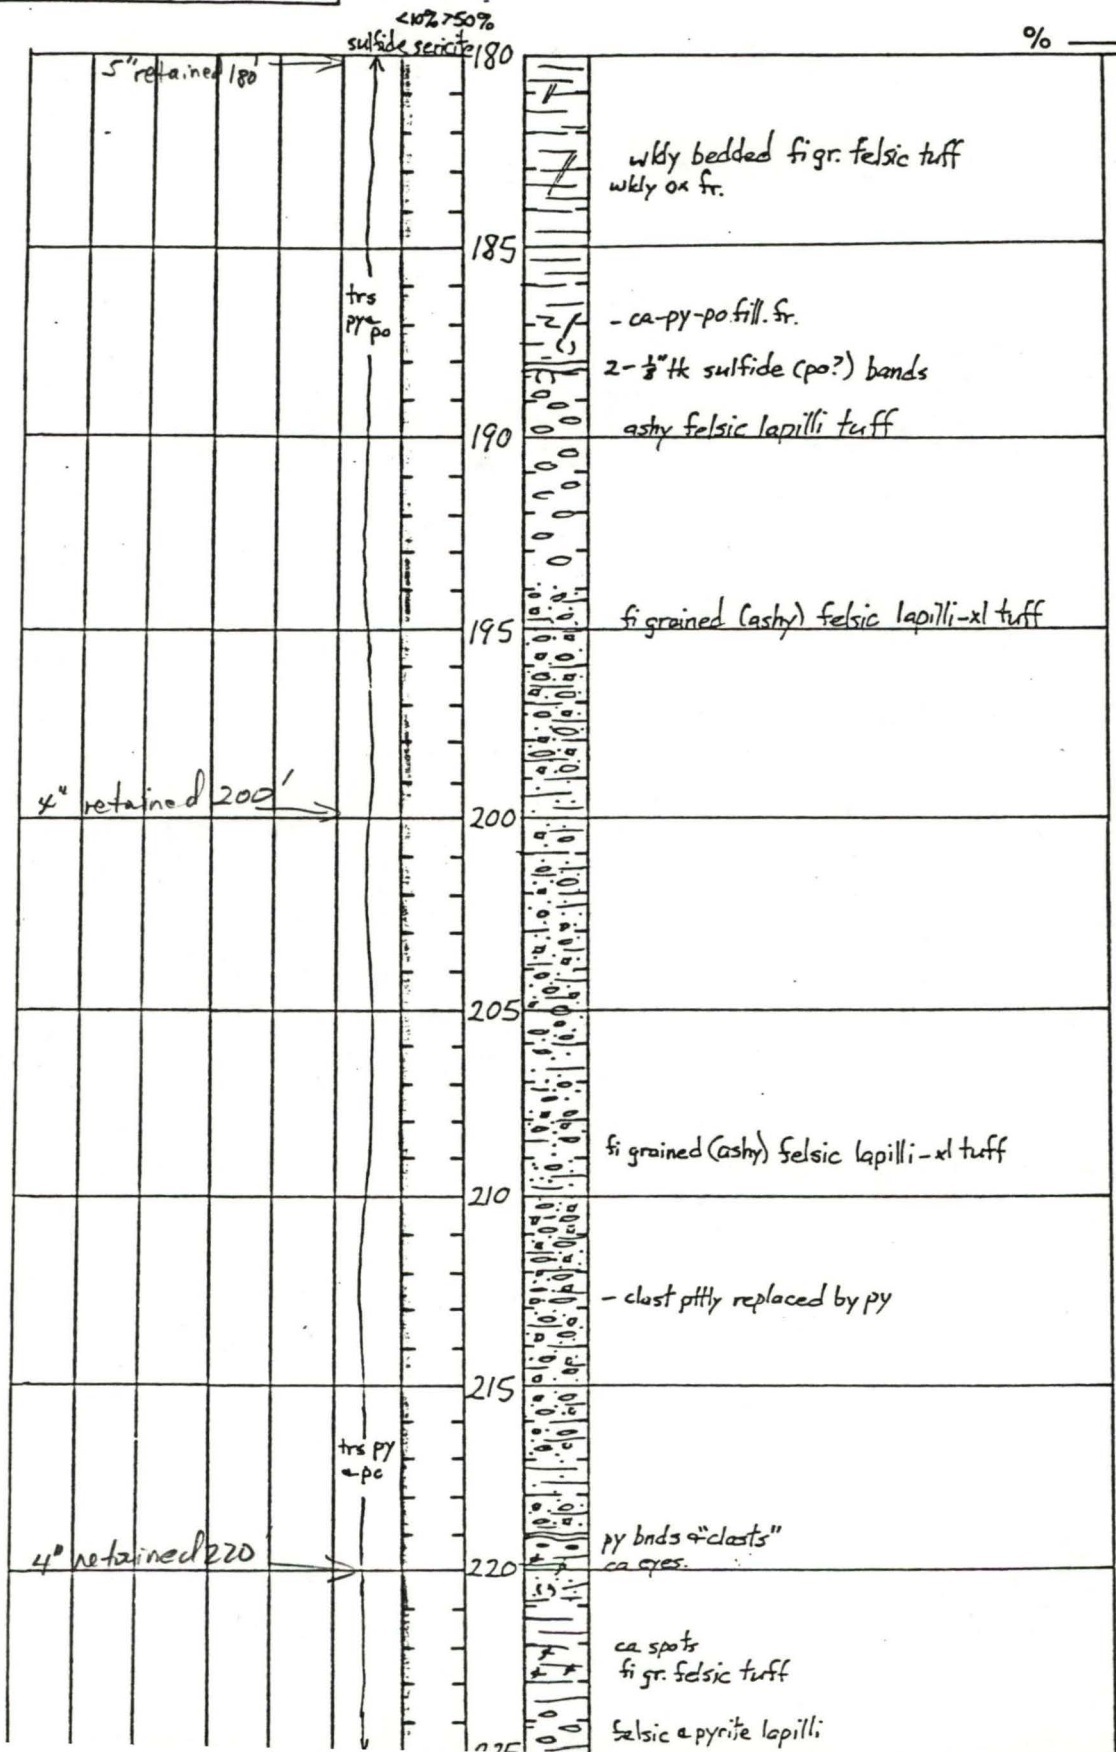 <10% >50%
sulfide sericite
%
180
5" retained 180'
wkly bedded fi gr. felsic tuff
wkly ox fr.
185
trs
py & po
- ca-py-po fill. fr.
2-⅛" tk sulfide (po?) bands
ashy felsic lapilli tuff
190
fi grained (ashy) felsic lapilli-xl tuff
195
4" retained 200'
200
205
fi grained (ashy) felsic lapilli-xl tuff
210
- clast prtly replaced by py
215
trs py
& po
py bnds & "clasts"
4" retained 220'
220
ca eyes.
ca spots
fi gr. felsic tuff
felsic & pyrite lapilli
225